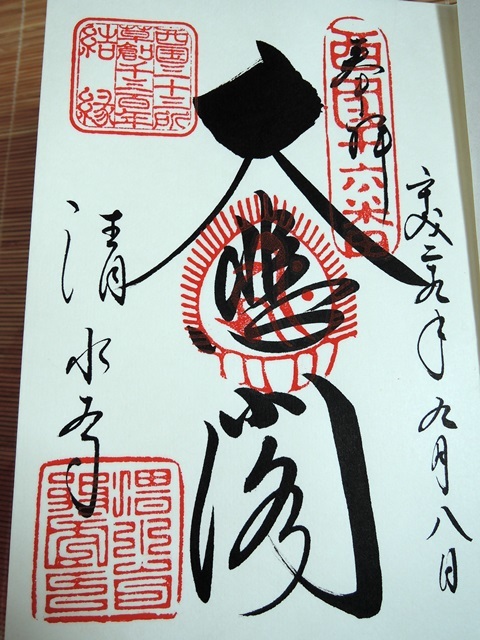 奉拝
西国十六番
平成二九年九月八日
大悲閣
西国三十三所
草創千三百年
結縁
清水寺